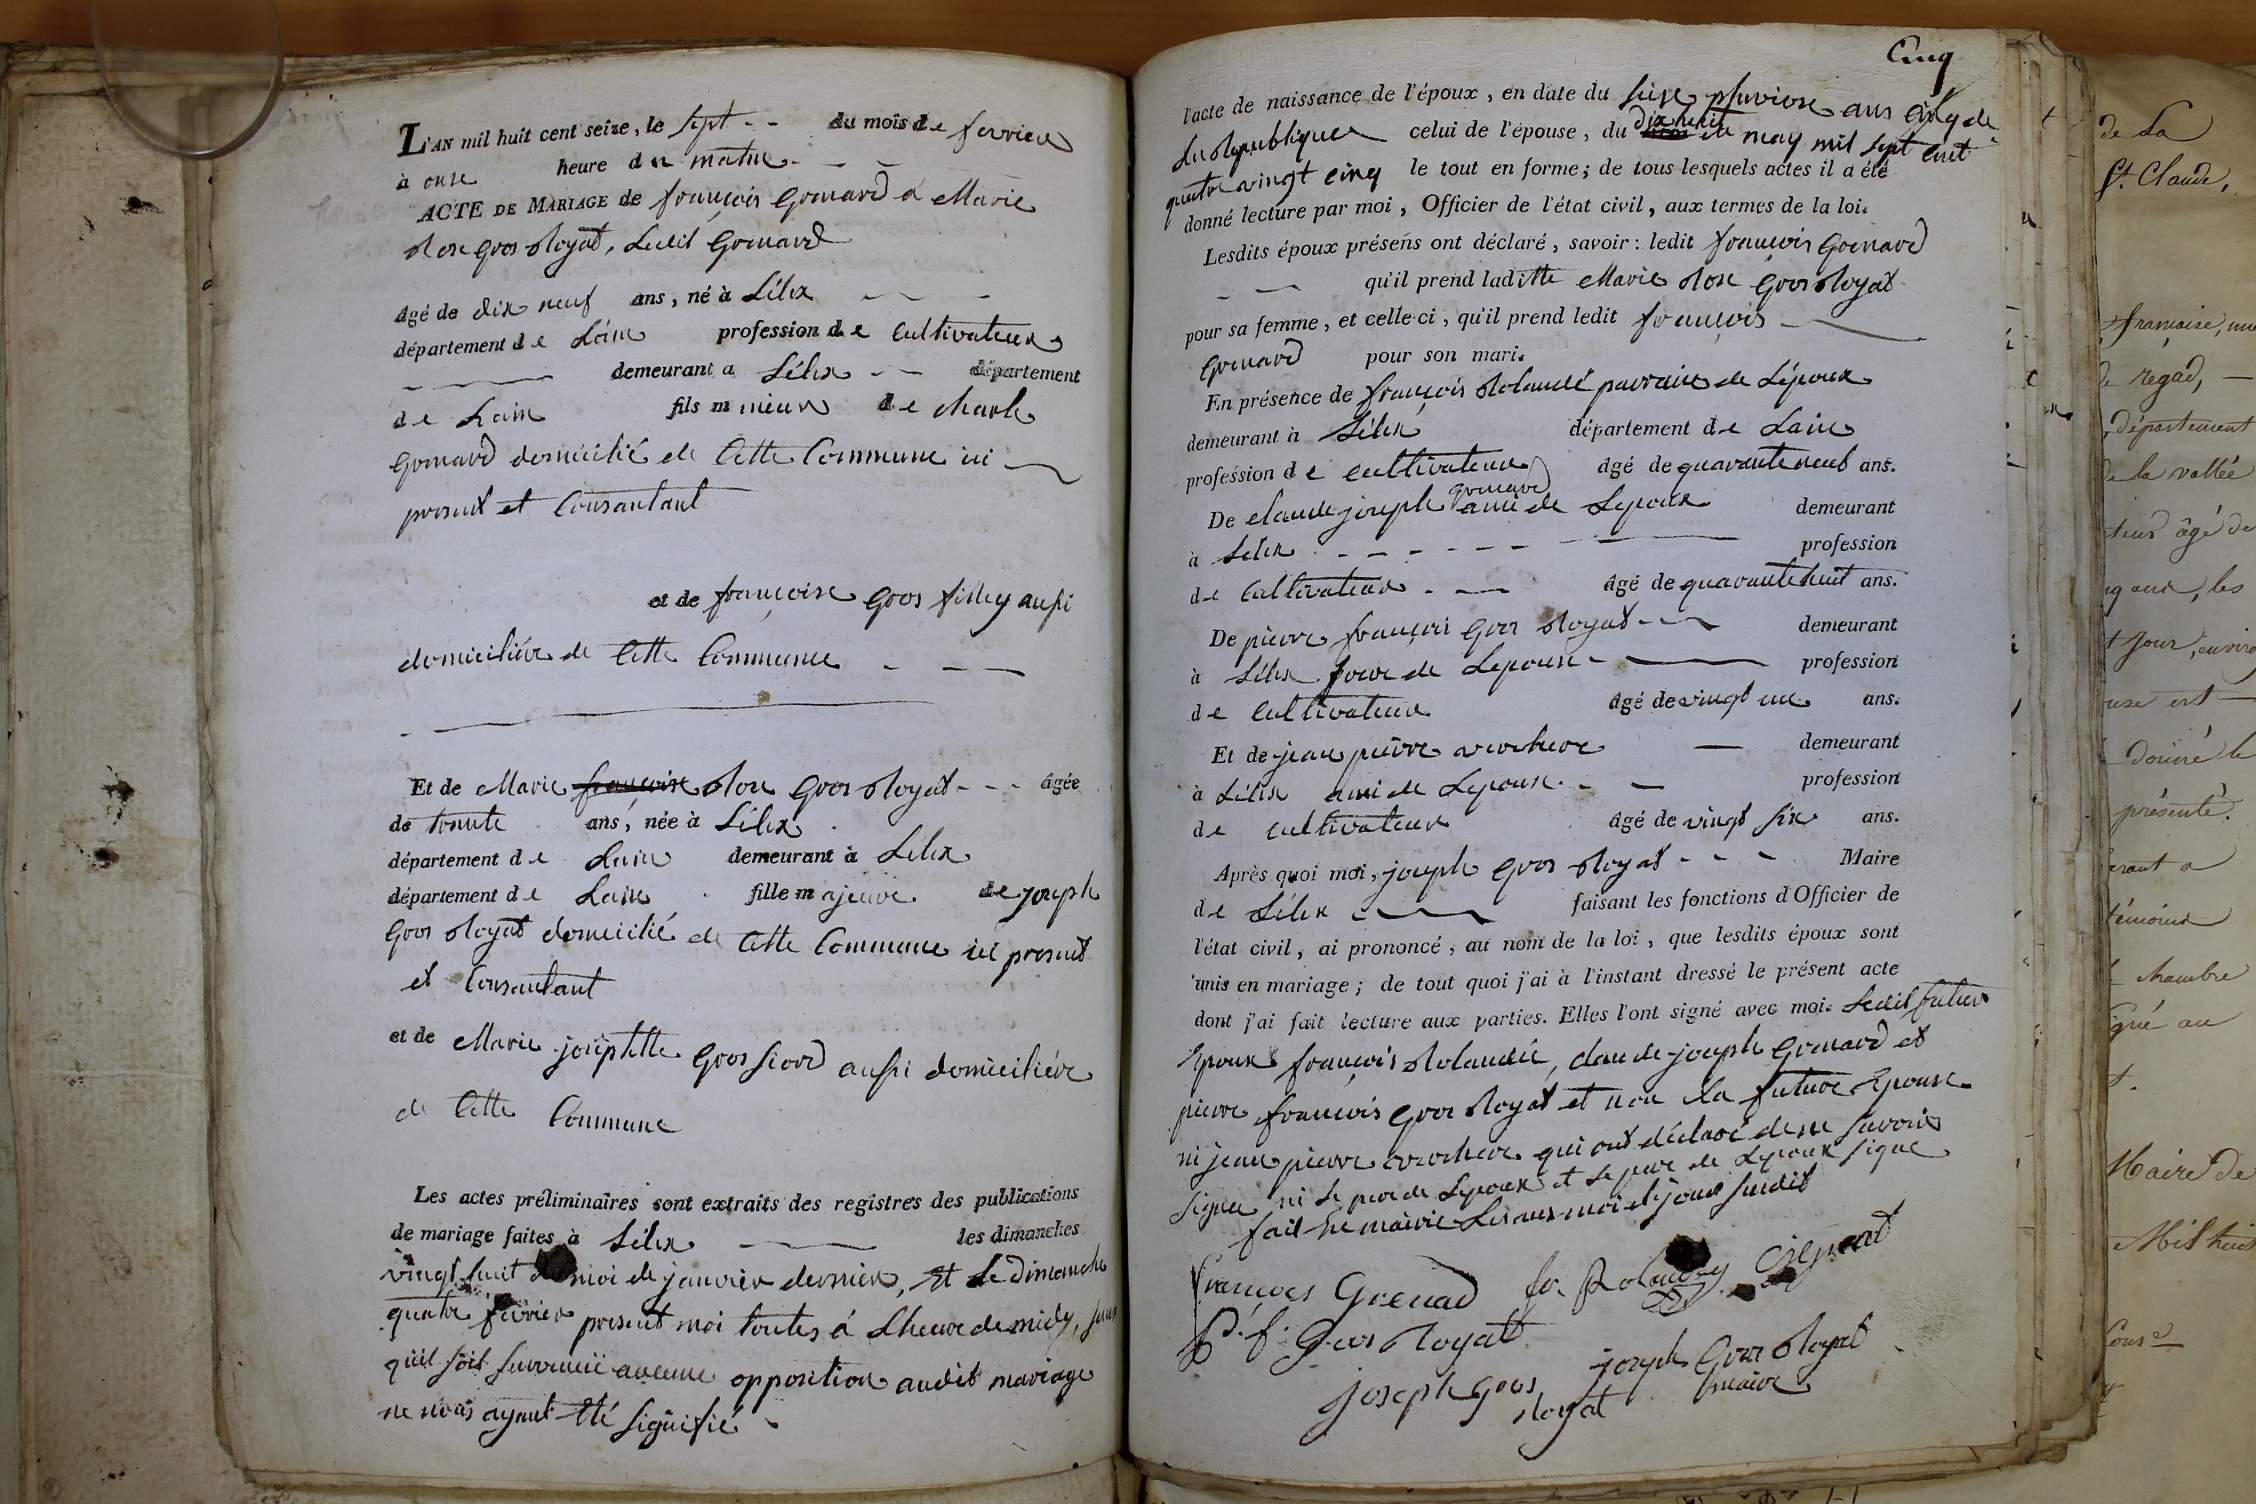 L'AN mil huit cent seize, le sept du mois de fevrier
à onze heure du matin
ACTE DE MARIAGE de françois Grenard a Marie
Rose gros Royat, Ledit Grenard
âgé de dix neuf ans, né à Lélex
département de Lain profession de Cultivateur
demeurant a Lélex département
de Lain fils mineur de charle
Grenard domicilié de Cette Commune ici
present et Consantant
et de françoise Gros filley aussi
domiciliére de Cette Commune
Et de Marie françoise Rose Gros Royat âgée
de trente ans, née à Lélex
département de Lain demeurant à Lélex
département de Lain fille majeure de joseph
Gros Royat domicilié de Cette Commune ici present
et Consantant
et de Marie josephtte Gros fiord aussi domiciliére
de Cette Commune
Les actes préliminaires sont extraits des registres des publications
de mariage faites à Lélex les dimanches
vingt huit moi de janvier dernier, Et le Dimanche
quatre fevrier present moi toutes á Lheure de midy, sans
quil soit survenue aucune opposition audit mariage
ne nous ayant Eté signifié
Cinq
l'acte de naissance de l'époux, en date du seize pluviose ans cinq de
La Republique celui de l'épouse, du dix huit may mil sept cent
quatre vingt cinq le tout en forme; de tous lesquels actes il a été
donné lecture par moi, Officier de l'état civil, aux termes de la loi.
Lesdits époux présens ont déclaré, savoir: ledit françois Grenard
qu'il prend laditte Marie Rose Gros Royat
pour sa femme, et celle-ci, qu'il prend ledit françois
Grenard pour son mari.
En présence de françois Rolandé parrain de Lépoux
demeurant à Lélex département de Lain
profession de cultivateur âgé de quarante neuf ans.
De claude joseph grenard ami de Lepoux demeurant
à Lelex profession
de Cultivateur âgé de quarante huit ans.
De pierre françois Gros Royat demeurant
à Lélex frere de Lepouse profession
de Cultivateur âgé de vingt un ans.
Et de jean pierre demeurant
à Lélex ami de Lepouse profession
de cultivateur âgé de vingt six ans.
Après quoi moi, joseph Gros Royat Maire
de Lélex faisant les fonctions d'Officier de
l'état civil, ai prononcé, au nom de la loi, que lesdits époux sont
unis en mariage; de tout quoi j'ai à l'instant dressé le présent acte
dont j'ai fait lecture aux parties. Elles l'ont signé avec moi. Ledit futur
Epoux françois Rolandé, claude joseph Grenard et
pierre françois Gros Royat et non La future Epouse
ni jean pierre qui ont déclaré de ne savoir
signer ni Le pere de Lepoux et Le pere de Lepoux signe
fait En mairie Les ans moi et jour susdit
françois Grenad fr. Rolandey
P. f. Gros Royat
joseph Gros Royat
maire
joseph Gros
Royat
de La
St. Claude,
française,
de regad,
département
de la vallée
âgé de
les
jour,
donné le
présenté.
a
témoins
chambre
signé au
Maire de
Mil huit